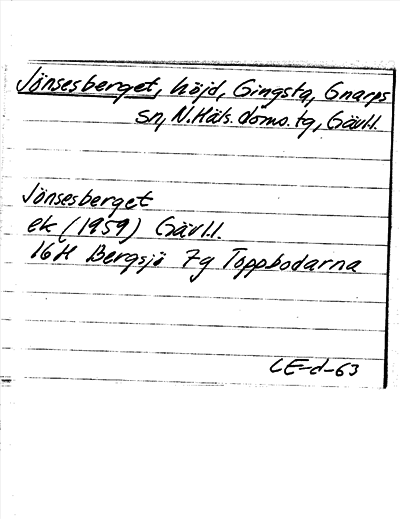 Jönsesberget, höjd, Gingsta, Gnarps
sn, N.Häls. doms.tg, Gävl.l.
Jönsesberget
ek (1959) Gävl.l.
16H Bergsjö 7g Toppbodarna
LE-d-63